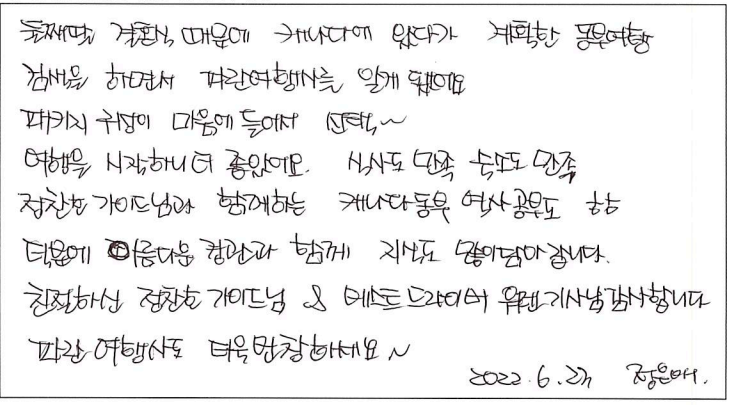 둘째딸 결혼식 때문에 캐나다에 왔다가 계획한 동부여행
검색을 하면서 파란여행사를 알게 됐어요
패키지 구성이 마음에 들어서 선택~
여행을 시작하니 더 좋았어요. 식사도 만족 숙소도 만족
정찬호 가이드님과 함께하는 캐나다동부 역사공부도 함
덕분에 아름다운 경관과 함께 지식도 많이담아갑니다.
친절하신 정찬호 가이드님 & 베스트드라이버 기사님감사합니다
파란여행사도 더욱번창하세요~
2022. 6. 정은애.